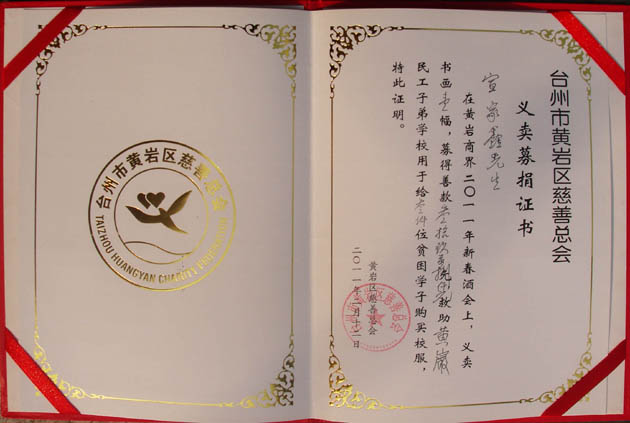 台州市黄岩区慈善总会
TAIZHOU HUANGYAN CHARITY
台州市黄岩区慈善总会
义卖募捐证书
宣家鑫先生
在黄岩商界二〇一一年新春酒会上，义卖
书画壹幅，募得善款壹拾玖万 款助黄巖
民工子弟学校用于给 位贫困学子购买校服，
特此证明。
黄岩区慈善总会
二〇一一年 月十二日